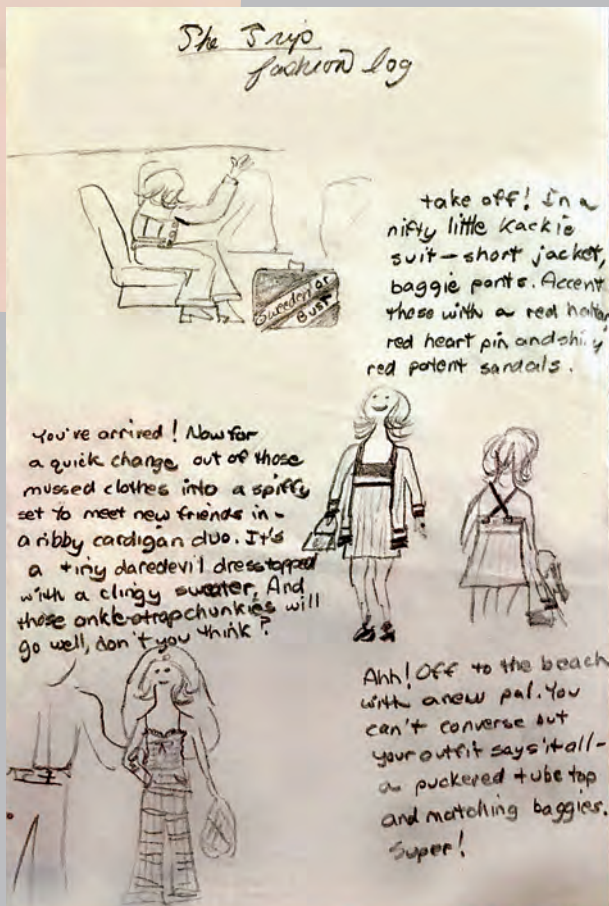 The Trip
fashion log
Sweeden or
Bust
take off! In a
nifty little Kackie
suit-short jacket,
baggie pants. Accent
these with a red halter
red heart pin and shiny
red patent sandals.
You've arrived! Now for
a quick change out of those
mussed clothes into a spiffy
set to meet new friends in-
a ribby cardigan duo. It's
a tiny daredevil dress topped
with a clingy sweater. And
those ankle-strap chunkies will
go well, don't you think?
Ahh! Off to the beach
with a new pal. You
can't converse but
your outfit says it all-
a puckered tube top
and matching baggies.
Super!